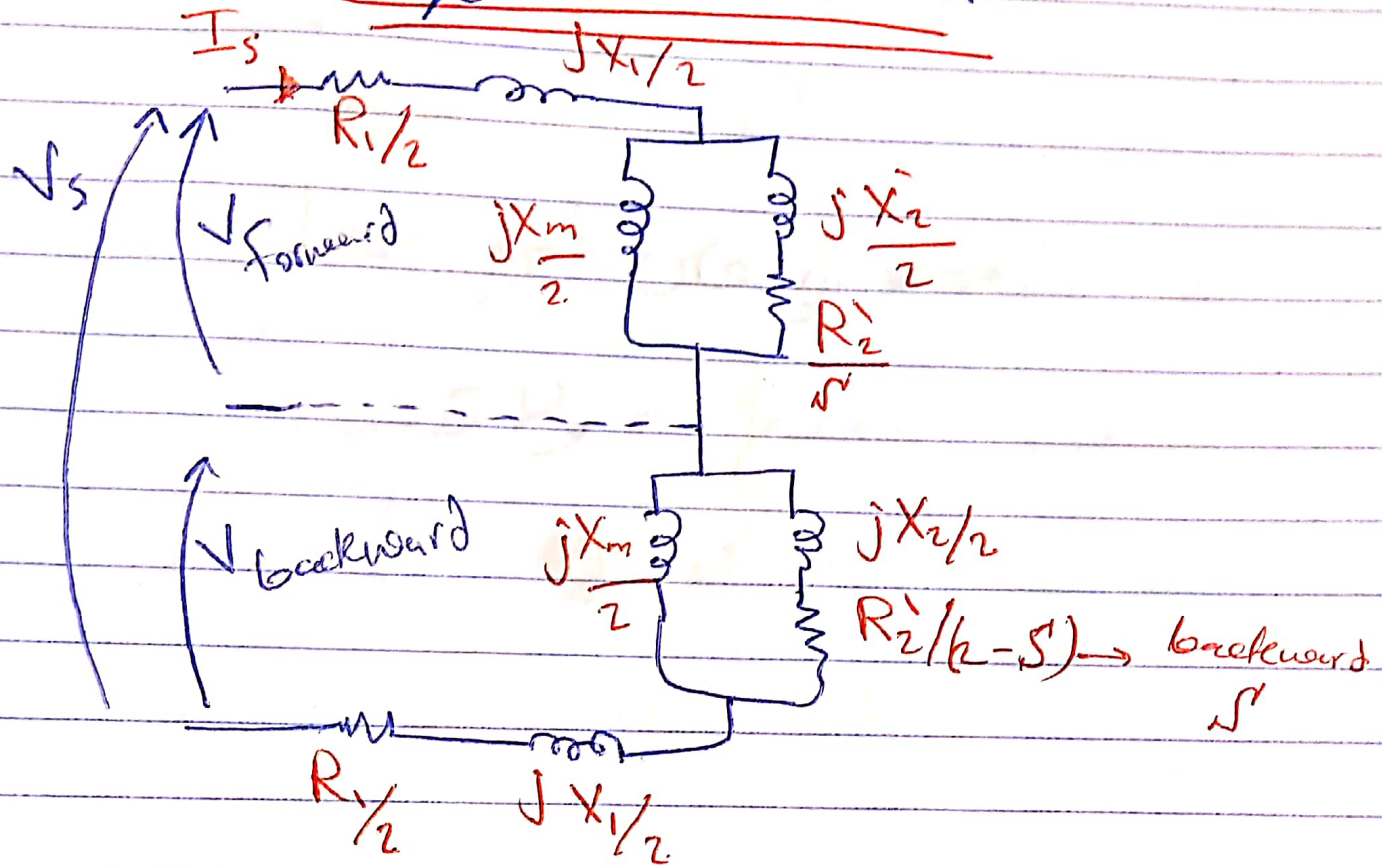 I_s
jX₁/2
R₁/2
V_s
V_forward
jX_m/2
jX₂`/2
R₂`/s
V_backward
jX_m/2
jX₂/2
R₂`/(2-S) → backward
s
R₁/2
jX₁/2